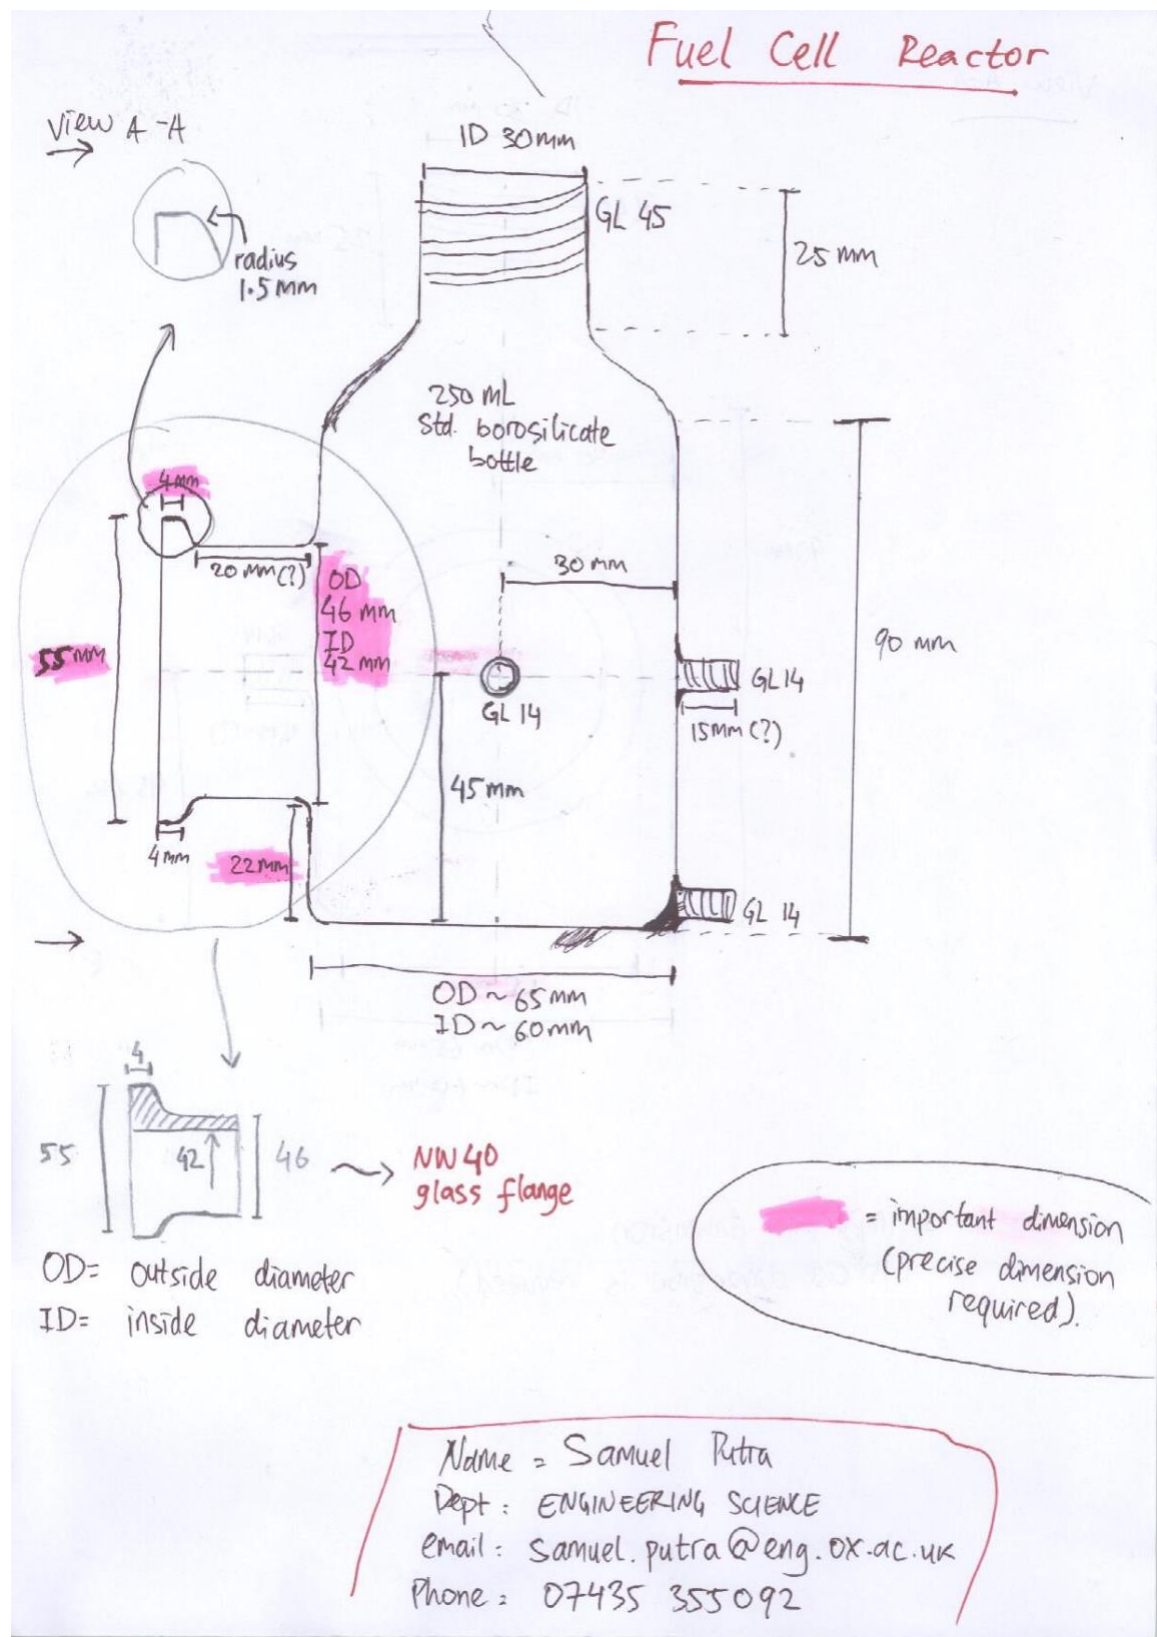 Fuel Cell Reactor
View A-A
ID 30mm
GL 45
25 mm
radius
1.5mm
250 mL
Std. borosilicate
bottle
4mm
20 mm(?)
OD
46 mm
ID
42 mm
30 mm
55 mm
90 mm
GL 14
GL 14
15mm (?)
45 mm
4mm
22mm
GL 14
OD ~ 65mm
ID ~ 60mm
4
55
42
46
NW40
glass flange
= important dimension
(precise dimension
required).
OD= outside diameter
ID= inside diameter
Name = Samuel Putra
Dept: ENGINEERING SCIENCE
email: samuel.putra@eng.ox.ac.uk
Phone: 07435 355092